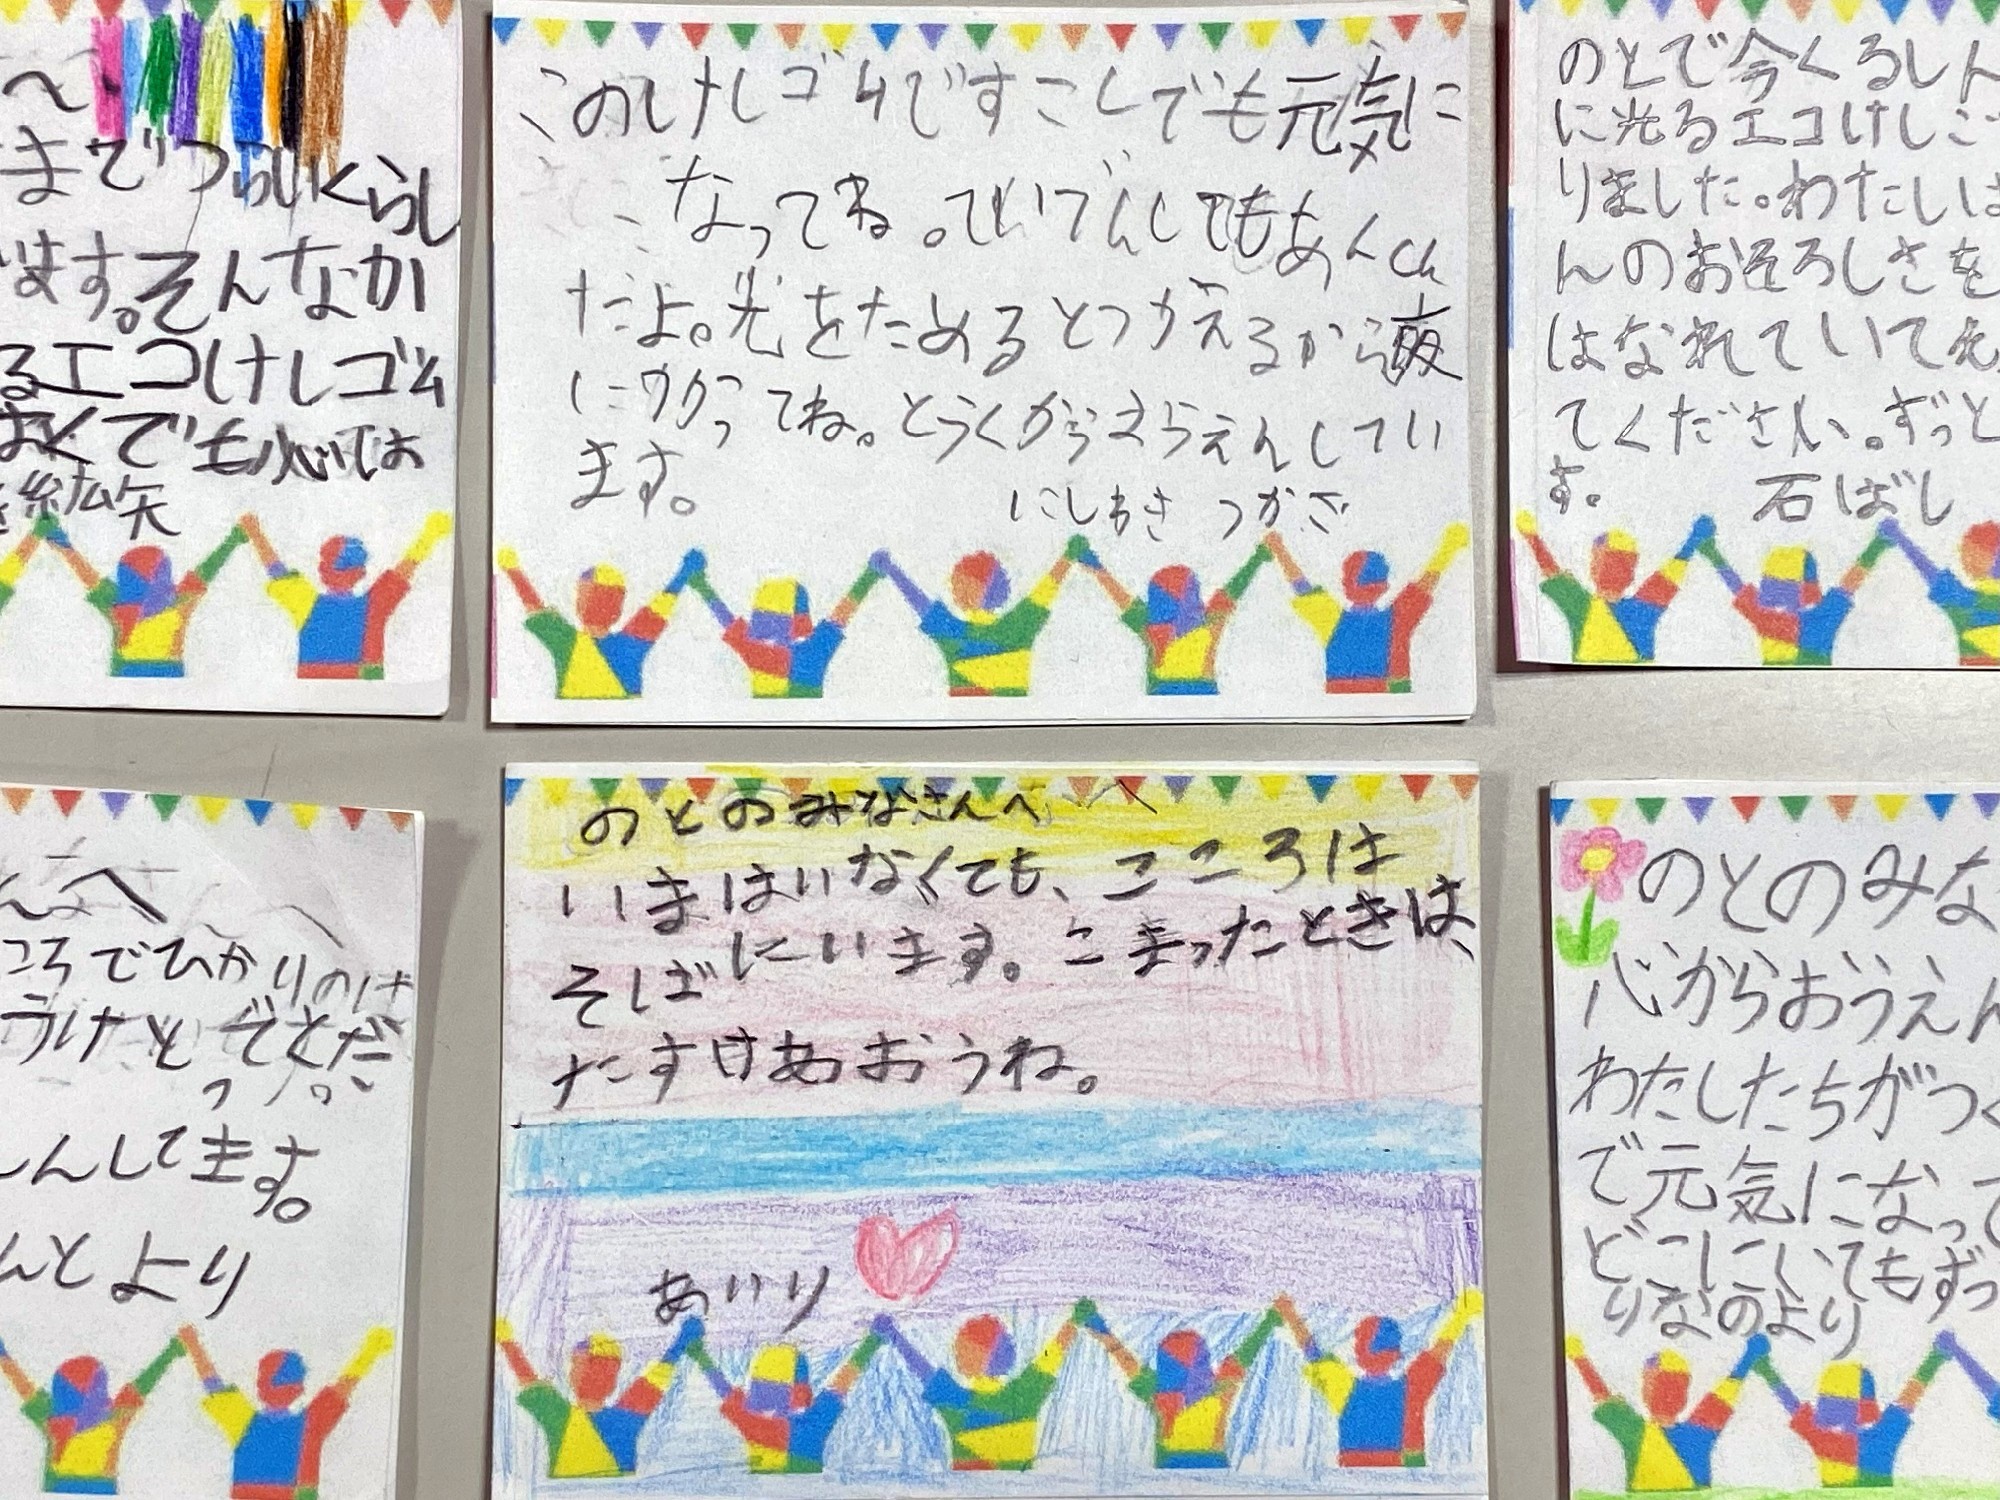 へ
までつらいくらし
います。そんなか
るエコけしゴム
おくでも心では
結矢
このけしゴムですこしでも元気に
なってね。ていでんしてもあんしん
だよ。光をためるとつかえるから夜
につかってね。とうくからおうえんしてい
ます。
にしわき つかさ
のとで今くるしん
に光るエコけしご
りました。わたしは
んのおそろしさを
はなれていても
てください。ずっと
す。 石ばし
んへ
ころでひかりのけ
うけとってくだ
しんしてます。
んとより
のとのみなさんへ
いまはいなくても、こころは
そばにいます。こまったときは、
たすけあおうね。
あいり
のとのみな
心からおうえん
わたしたちがつく
で元気になって
どこにいてもずっ
りなのより